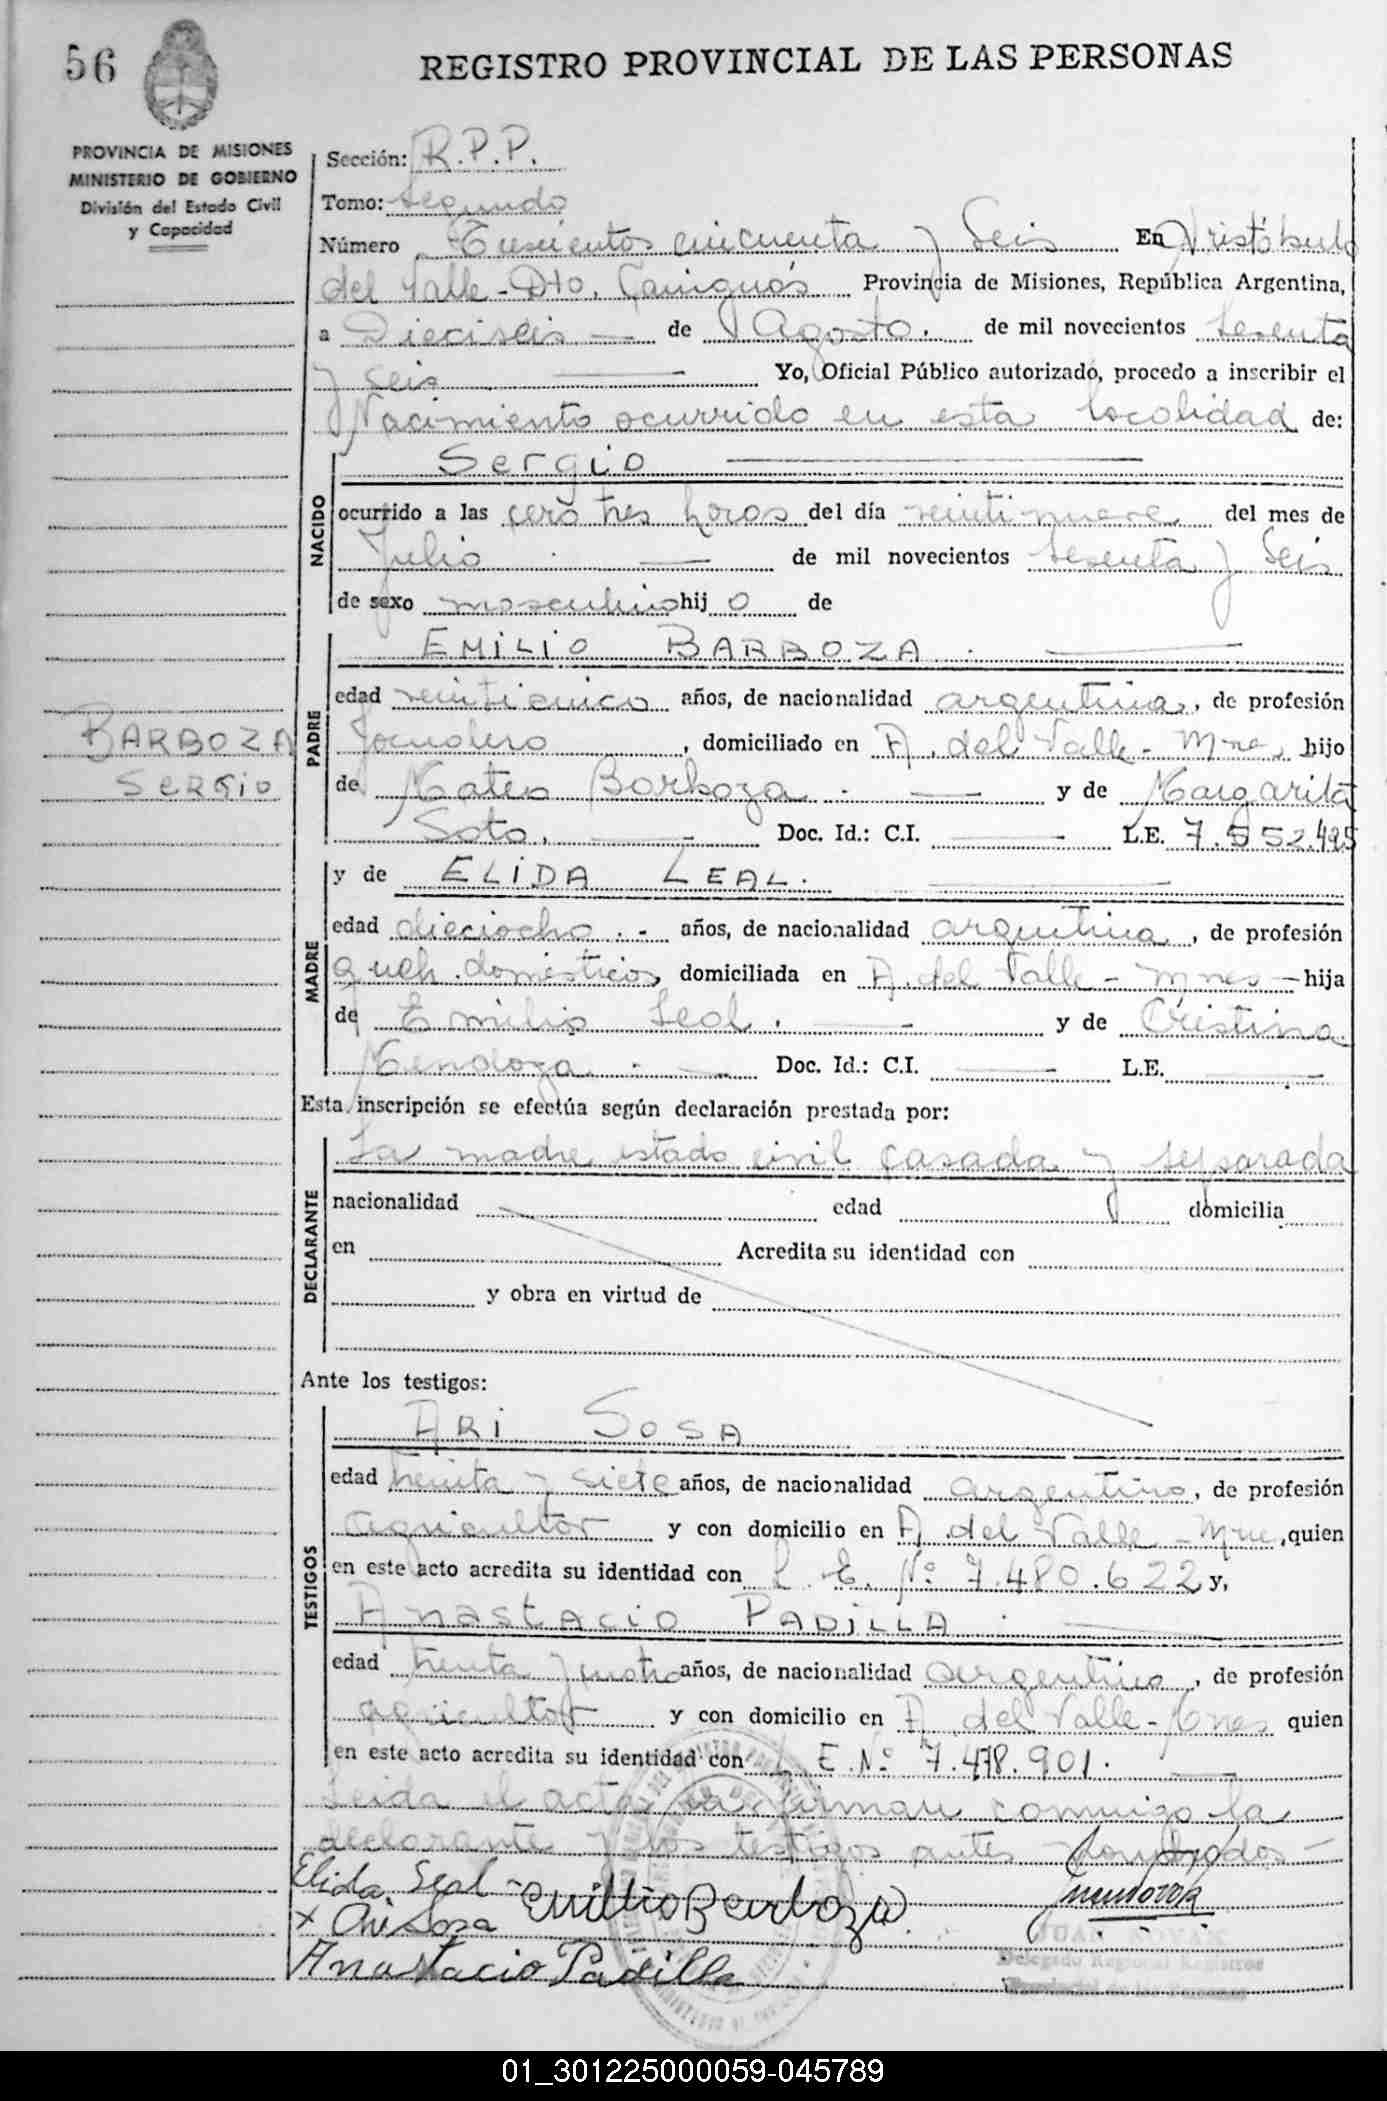 56
REGISTRO PROVINCIAL DE LAS PERSONAS
PROVINCIA DE MISIONES
MINISTERIO DE GOBIERNO
División del Estado Civil
y Capacidad
Sección: R.P.P.
Tomo: Segundo
Número Trescientos cincuenta y Seis En Aristóbulo
del Valle - Dto. Cainguás Provincia de Misiones, República Argentina,
a Dieciseis de Agosto. de mil novecientos sesenta
y seis Yo, Oficial Público autorizado, procedo a inscribir el
Nacimiento ocurrido en esta localidad de:
NACIDO
Sergio
ocurrido a las cero tres horas del día veintinueve del mes de
Julio de mil novecientos sesenta y Seis
de sexo masculino hij o de
PADRE
EMILIO BARBOZA
edad veinticinco años, de nacionalidad argentina, de profesión
Jornalero, domiciliado en A. del Valle - Mnes, hijo
de Mateo Barboza y de Margarita
Soto. Doc. Id.: C.I. L.E. 7.552.425
BARBOZA
SERGIO
MADRE
y de ELIDA LEAL.
edad dieciocho años, de nacionalidad argentina, de profesión
queh. domésticos, domiciliada en A. del Valle - Mnes - hija
de Emilio Leal. y de Cristina
Mendoza Doc. Id.: C.I. L.E.
Esta inscripción se efectúa según declaración prestada por:
DECLARANTE
La madre estado civil casada y separada
nacionalidad edad domicilia
en Acredita su identidad con
y obra en virtud de
Ante los testigos:
TESTIGOS
ARI SOSA
edad treinta y siete años, de nacionalidad argentino, de profesión
agricultor y con domicilio en A. del Valle - Mnes, quien
en este acto acredita su identidad con L. E. Nº 7.480.622 y,
ANASTACIO PADILLA
edad treinta y cuatro años, de nacionalidad argentino, de profesión
agricultor y con domicilio en A. del Valle - Mnes quien
en este acto acredita su identidad con L E. Nº 7.478.901.
Leida el acta, la firman conmigo la
declarante y los testigos antes nombrados -
Elida Leal - Emilio Barboza
x Ari Sosa
Anastacio Padilla
JUAN NOVAK
Delegado Regional Registros
Provincial de las Personas
01_301225000059-045789